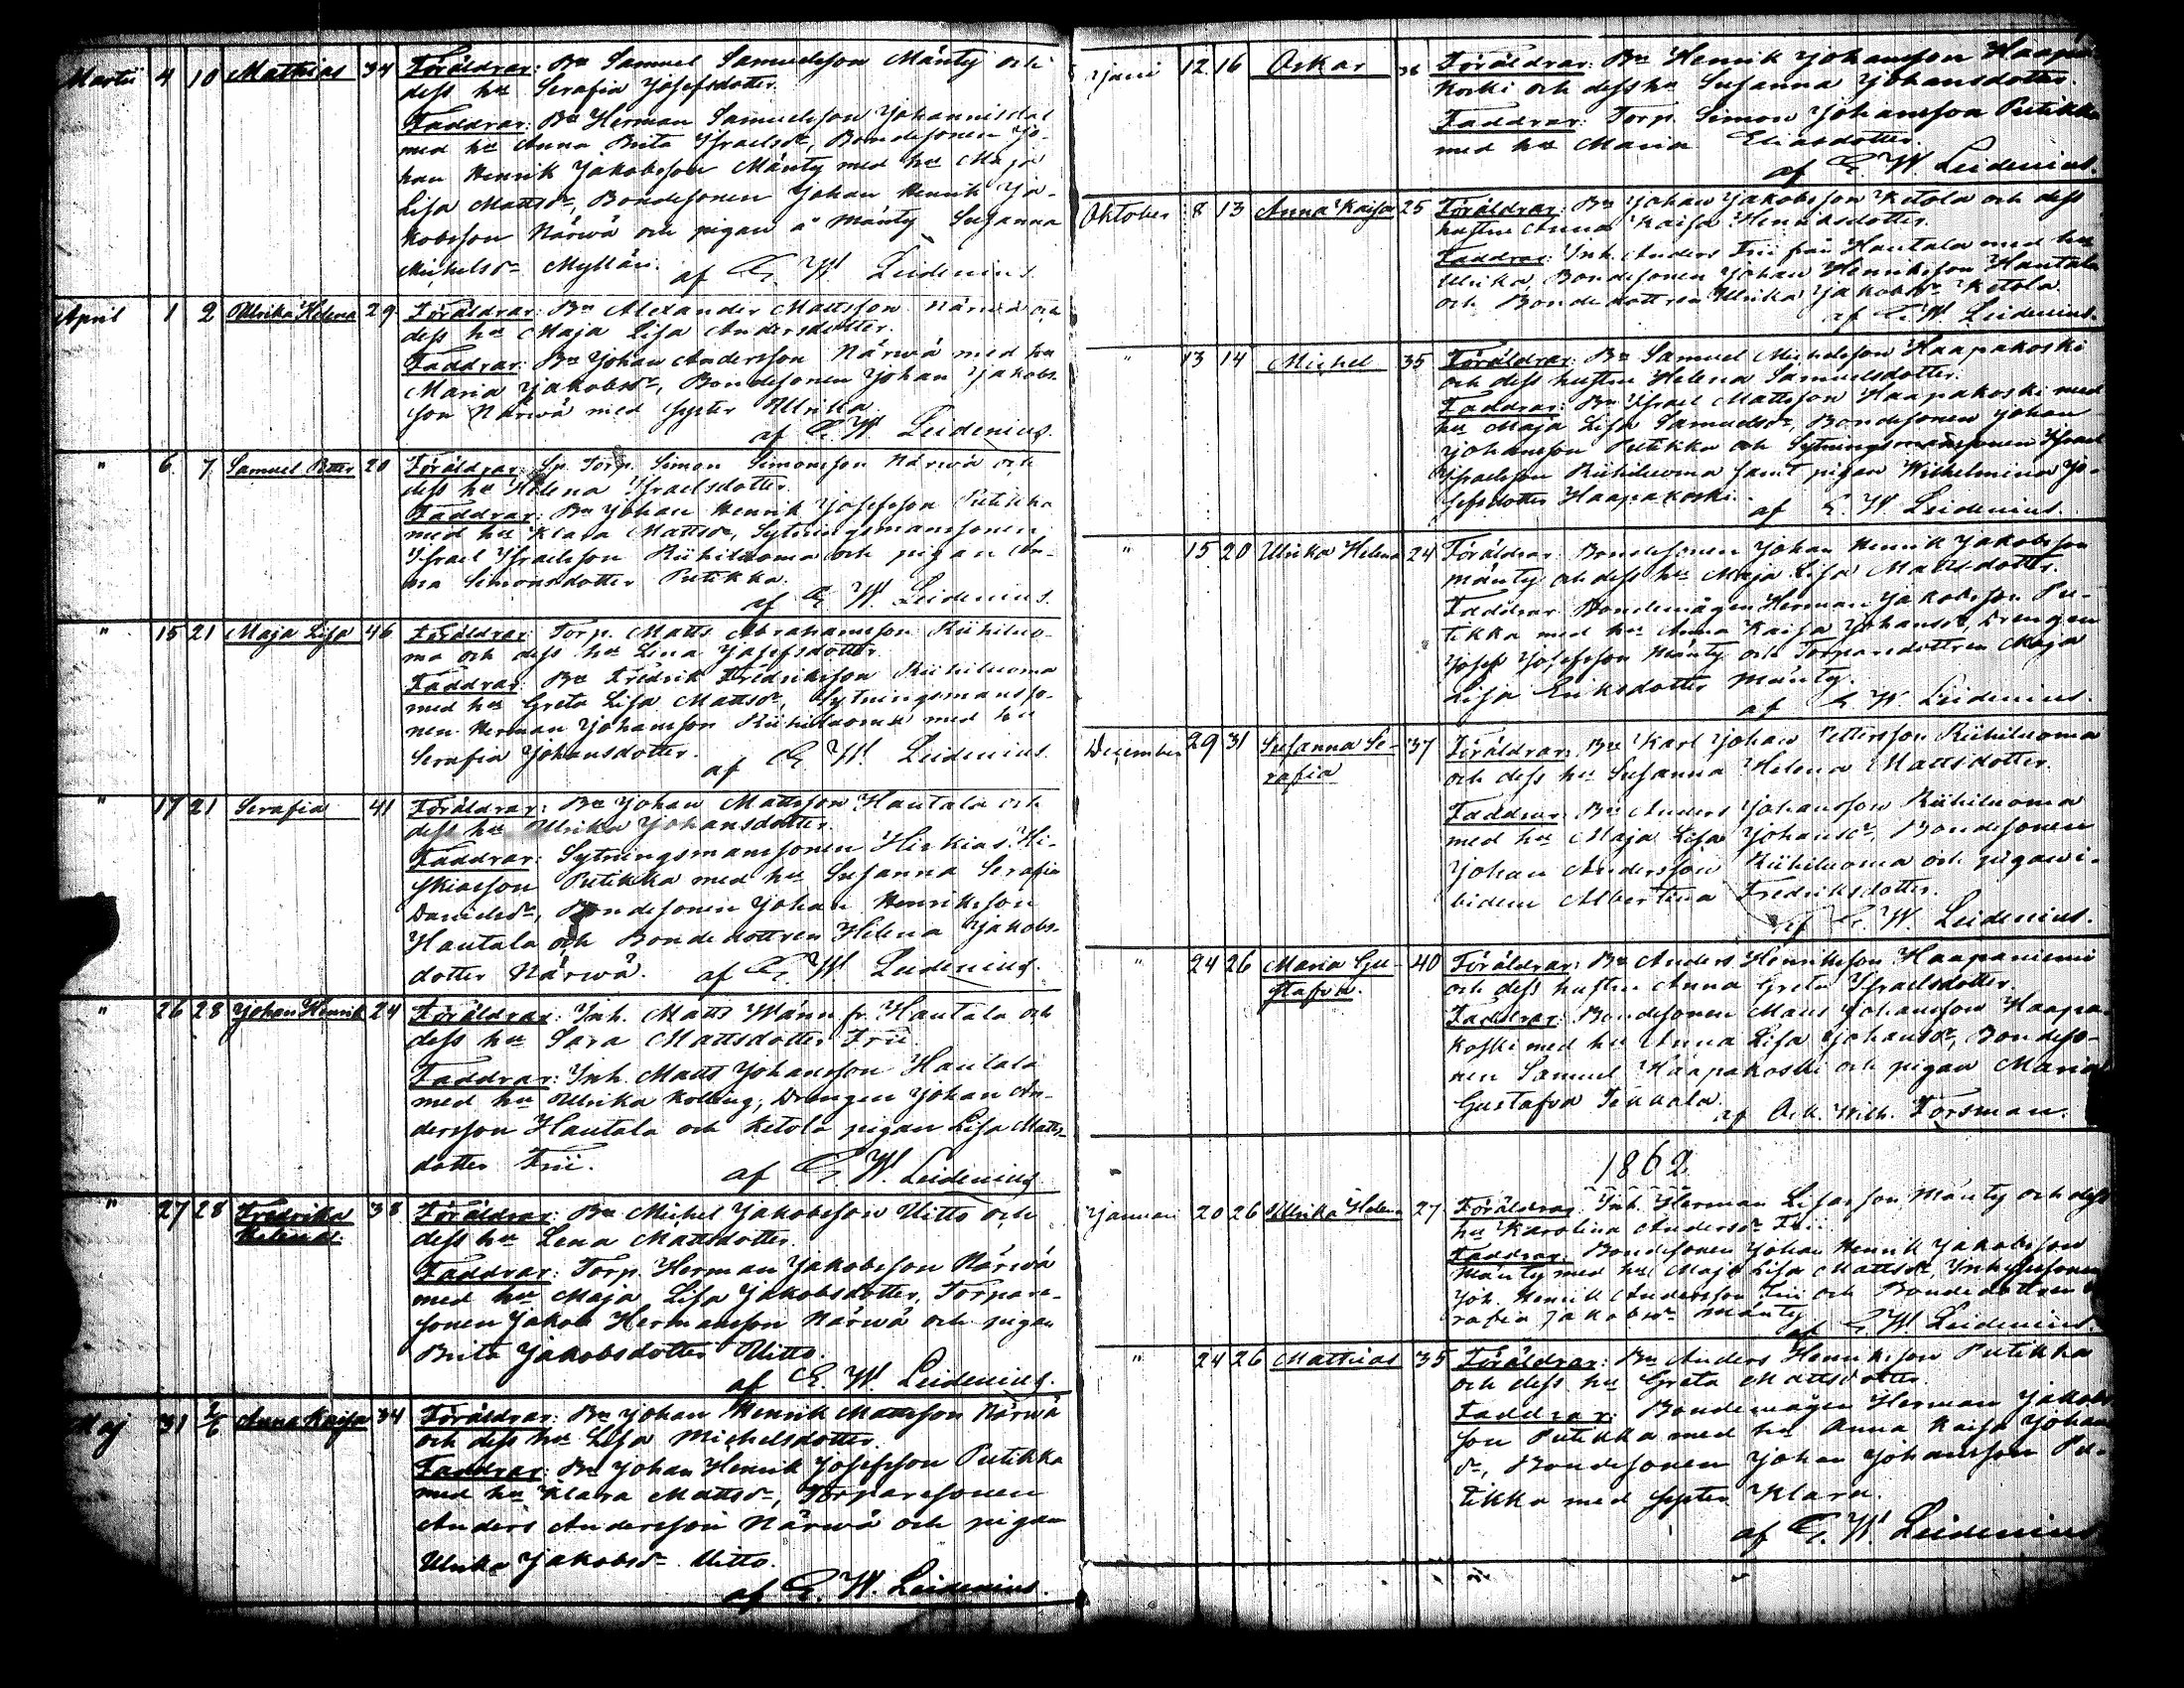 Martii 4 10 Mathias 34 Föräldrar: Bn Samuel Samuelsson Mänty och
dess hu Serafia Josefsdotter.
Faddrar: Bn Herman Samuelsson Johannisdal
med hu Anna Brita Israelsdr, Bondesonen Jo-
han Henrik Jakobsson Mänty med hu Maja
Lisa Mattsdr, Bondesonen Johan Henrik Ja-
kobsson Närwä och pigan å Mänty Susanna
Michelsdr Mylläri. af E. W. Leidenius.
April 1 2 Ulrika Helena 29 Föräldrar: Bn Alexander Mattsson Närwä och
dess hu Maja Lisa Andersdotter.
Faddrar: Bn Johan Andersson Närwä med hu
Maria Jakobsdr, Bondesonen Johan Jakobs-
son Närwä med syster Ulrika.
af E. W. Leidenius.
" 6 7 Samuel Petter 20 Föräldrar: Sp. Torp. Simon Simonsson Närwä och
dess hu Helena Israelsdotter.
Faddrar: Bn Johan Henrik Josefsson Putikka
med hu Klara Mattsdr, Sytningsmanssonen
Israel Israelsson Riihiluoma och pigan An-
na Simonsdotter Putikka.
af E. W. Leidenius.
" 15 21 Maja Lisa 46 Föräldrar: Torp. Matts Abrahamsson Riihiluo-
ma och dess hu Lena Josefsdotter.
Faddrar: Bn Fredrik Fredriksson Riihiluoma
med hu Greta Lisa Mattsdr, Sytningsmansso-
nen Herman Johansson Riihiluoma med hu
Serafia Johansdotter.
af E. W. Leidenius.
" 17 21 Serafia 41 Föräldrar: Bn Johan Mattsson Hautala och
dess hu Ulrika Johansdotter.
Faddrar: Sytningsmanssonen Hiskias Hi-
skiasson Putikka med hu Susanna Serafia
Danielsdr, Bondesonen Johan Henriksson
Hautala och Bondedottren Helena Jakobs-
dotter Närwä. af E. W. Leidenius.
" 26 28 Johan Henrik 24 Föräldrar: Inh. Matts Wänn fr. Hautala och
dess hu Sara Mattsdotter Frii.
Faddrar: Inh. Matts Johansson Hautala
med hu Ulrika Kolling, Drengen Johan An-
dersson Hautala och Ketola pigan Lisa Matts-
dotter Frii.
af E. W. Leidenius
" 27 28 Fredrika
Helena. 38 Föräldrar: Bn Michel Jakobsson Uitto och
dess hu Lena Mattsdotter.
Faddrar: Torp. Herman Jakobsson Närwä
med hu Maja Lisa Jakobsdotter, Torpare-
sonen Jakob Hermansson Närwä och pigan
Brita Jakobsdotter Uitto.
af E. W. Leidenius.
Maj 31 2/6 Anna Kaisa 34 Föräldrar: Bn Johan Henrik Mattsson Närwä
och dess hu Lisa Michelsdotter.
Faddrar: Bn Johan Henrik Josefsson Putikka
med hu Klara Mattsdr, Torparesonen
Anders Andersson Närwä och pigan
Ulrika Jakobsdr Uitto.
af E. W. Leidenius.
Juni 12 16 Oskar 36 Föräldrar: Bn Henrik Johansson Haapa-
koski och dess hu Susanna Johansdotter.
Faddrar: Torp. Simon Johansson Putikka
med hu Maria Eliasdotter.
af E. W. Leidenius.
Oktober 8 13 Anna Kaisa 25 Föräldrar: Bn Johan Jakobsson Ketola och dess
hustru Anna Kaisa Henriksdotter.
Faddrar: Inh. Anders Frii från Hautala med hu
Ulrika, Bondesonen Johan Henriksson Hautala
och Bondedottren Ulrika Jakobsdr Ketola.
af E. W. Leidenius.
" 13 14 Michel 35 Föräldrar: Bn Samuel Michelsson Haapakoski
och dess hustru Helena Samuelsdotter.
Faddrar: Bn Israel Mattsson Haapakoski med
hu Maja Lisa Samuelsdr, Bondesonen Johan
Johansson Putikka och Sytningsmanssonen Israel
Israelsson Riihiluoma samt pigan Wilhelmina Jo-
sefsdotter Haapakoski.
af E. W. Leidenius.
" 15 20 Ulrika Helena 24 Föräldrar: Bondesonen Johan Henrik Jakobsson
Mänty och dess hu Maja Lisa Mattsdotter.
Faddrar: Bondemågen Herman Jakobsson Pu-
tikka med hu Anna Kaisa Johansdr, Drengen
Josef Josefsson Mänty och Torparedottren Maja
Lisa Eriksdotter Mänty.
af E. W. Leidenius.
December 29 31 Susanna Se-
rafia 37 Föräldrar: Bn Karl Johan Pettersson Riihiluoma
och dess hu Susanna Helena Mattsdotter.
Faddrar: Bn Anders Johansson Riihiluoma
med hu Maja Lisa Johansdr, Bondesonen
Johan Andersson Riihiluoma och pigan i-
bidem Albertina Fredriksdotter.
af E. W. Leidenius.
" 24 26 Maria Gu-
stafva. 40 Föräldrar: Bn Anders Henriksson Haapaniemi
och dess hustru Anna Greta Israelsdotter.
Faddrar: Bondesonen Matts Johansson Haapa-
koski med hu Anna Lisa Johansdr, Bondeso-
nen Samuel Haapakoski och pigan Maria
Gustafva
af Wilh. Forsman.
1862
Januari 20 26 Ulrika Helena 27 Föräldrar: Inh. Herman Lisasson Mänty och dess
hu Karolina Andersdr Frii.
Faddrar: Bondesonen Johan Henrik Jakobsson
Mänty med hu Maja Lisa Mattsdr, Inhysessonen
Joh. Henrik Andersson Frii och Bondedottren
rafia Jakobsdr Mänty
af E. W. Leidenius.
" 24 26 Mathias 35 Föräldrar: Bn Anders Henriksson Putikka
och dess hu Greta Mattsdotter.
Faddrar: Bondemågen Herman Jakobs-
son Putikka med hu Anna Kaisa Johans-
dr, Bondesonen Johan Johansson Pu-
tikka med syster Klara.
af E. W. Leidenius